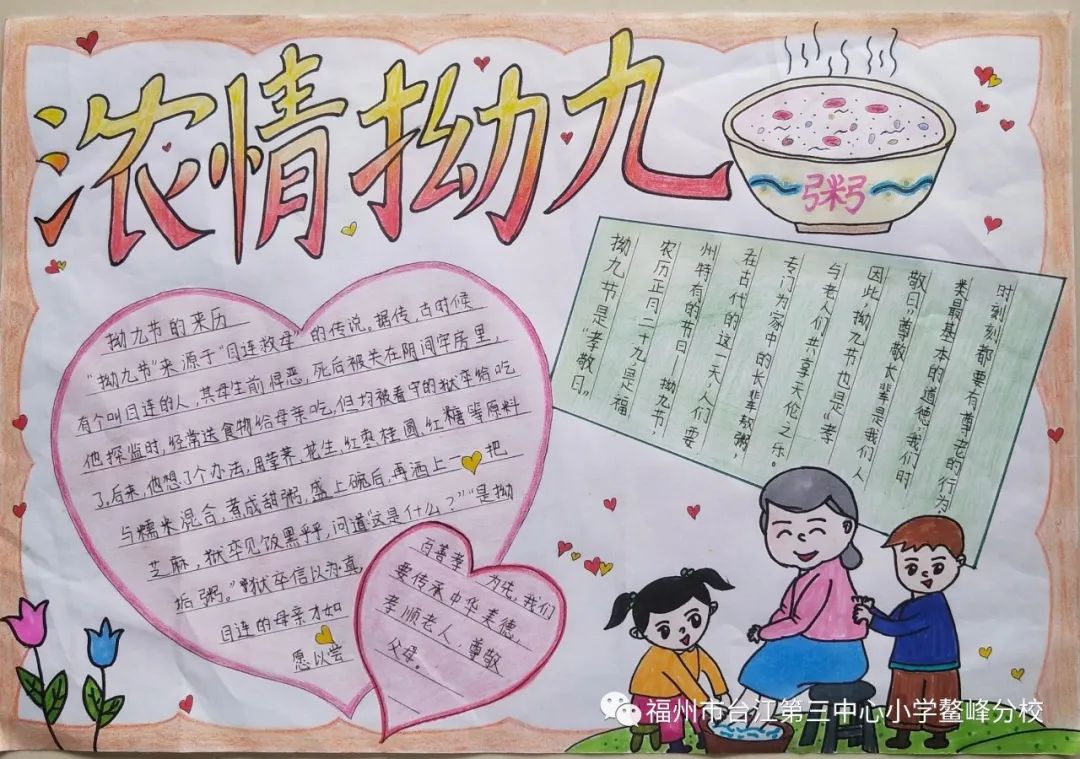 浓情拗九
粥
拗九节的来历
“拗九节”来源于“目连救母”的传说。据传，古时候
有个叫目连的人，其母生前悍恶，死后被关在阴间牢房里，
他探监时，经常送食物给母亲吃，但均被看守的狱卒给吃
了。后来，他想了个办法，用荸荠、花生，红枣桂圆、红糖等原料
与糯米混合，煮成甜粥，盛上碗后，再洒上一把
芝麻，狱卒见饭黑乎乎，问道“这是什么？”“是拗
垢粥。”狱卒信以为真
目连的母亲才如
愿以尝
百善孝为先，我们
要传承中华美德，
孝顺老人，尊敬
父母。
拗九节是“孝敬日。
农历正月二十九，是福
州特有的节日—拗九节，
在古代的这一天，人们要
专门为家中的长辈熬粥，
与老人们共享天伦之乐。
因此，拗九节也是“孝
敬日”尊敬长辈是我们人
类最基本的道德，我们时
时刻刻都要有尊老的行为
福州市台江第三中心小学鳌峰分校